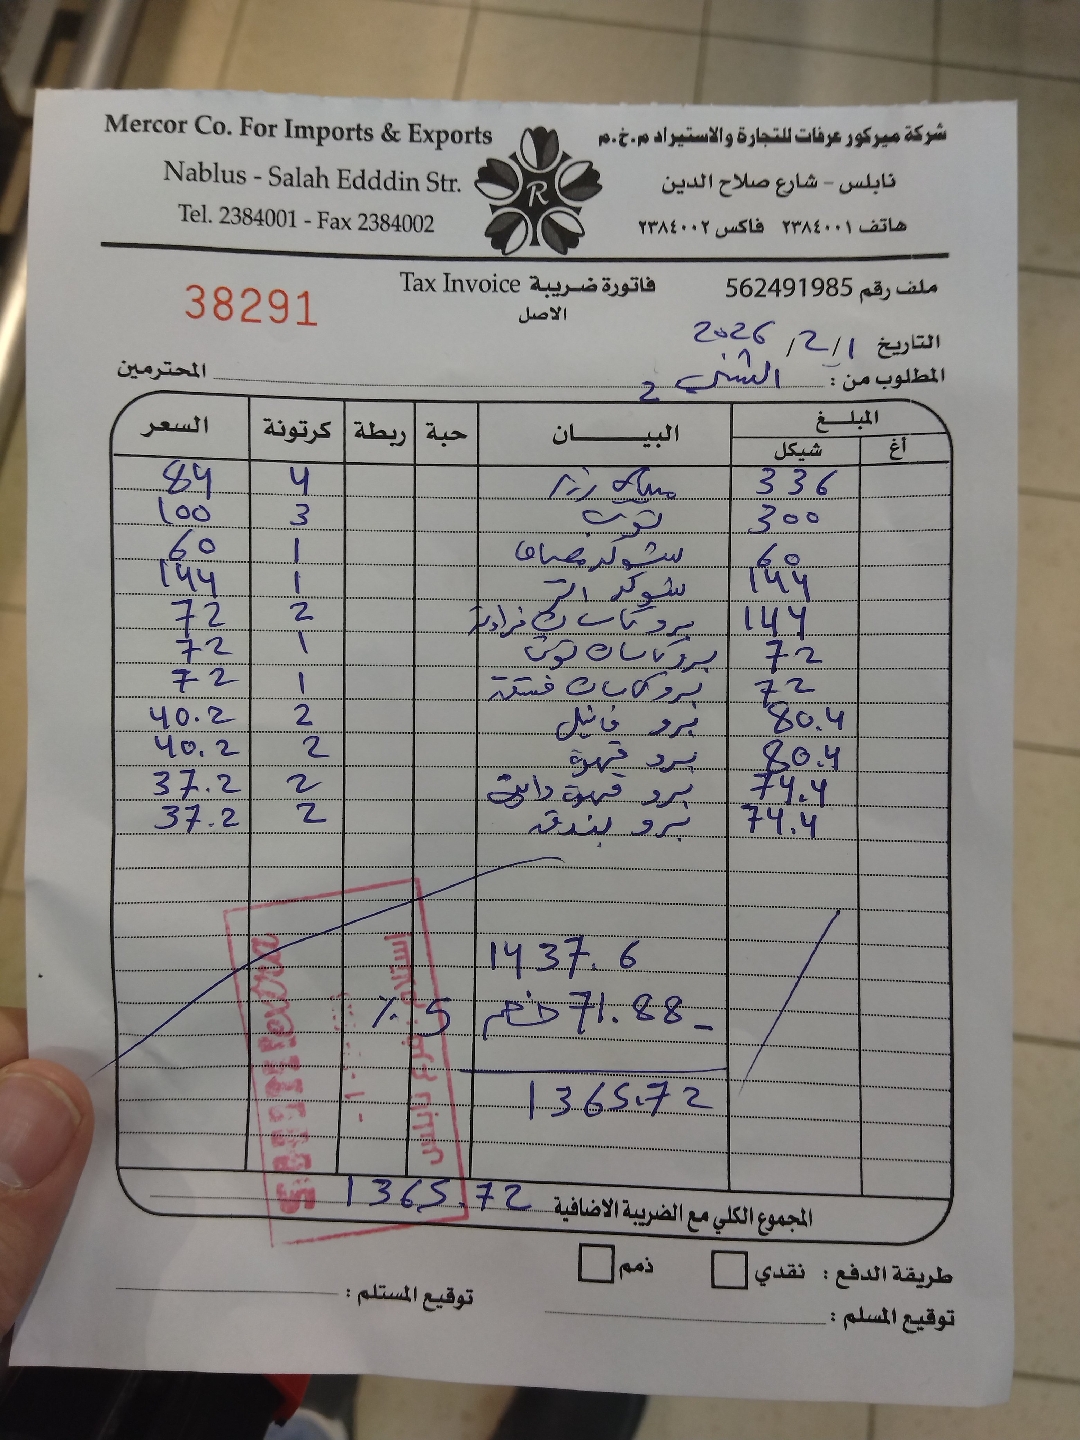 Mercor Co. For Imports & Exports
Nablus - Salah Edddin Str.
Tel. 2384001 - Fax 2384002
R
شركة ميركور عرفات للتجارة والاستيراد م.خ.م
نابلس - شارع صلاح الدين
هاتف ٢٣٨٤٠٠١ فاكس ٢٣٨٤٠٠٢
ملف رقم 562491985
Tax Invoice فاتورة ضريبة
الاصل
38291
التاريخ 1/2/2026
المطلوب من : 2 المحترمين
المبلغ البيـــــان حبة ربطة كرتونة السعر
أغ شيكل
336 4 84
300 توت 3 100
60 شوكو 1 60
144 شوكو 1 144
144 برو كاسات 2 72
72 برو كاسات توت 1 72
72 برو كاسات 1 72
80.4 برو 2 40.2
80.4 برو قهوة 2 40.2
74.4 برو قهوة 2 37.2
74.4 برو بندق 2 37.2
1437.6
- 71.88 خصم 5 ٪
1365.72
المجموع الكلي مع الضريبة الاضافية 1365.72
طريقة الدفع : نقدي ذمم
توقيع المسلم : توقيع المستلم :